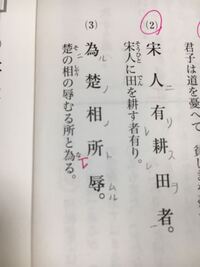 君子は道を憂へて
(2)
宋人有耕田者。
宋人に田を耕す者有り。
(3)
為楚相所辱。
楚の相の辱むる所と為る。